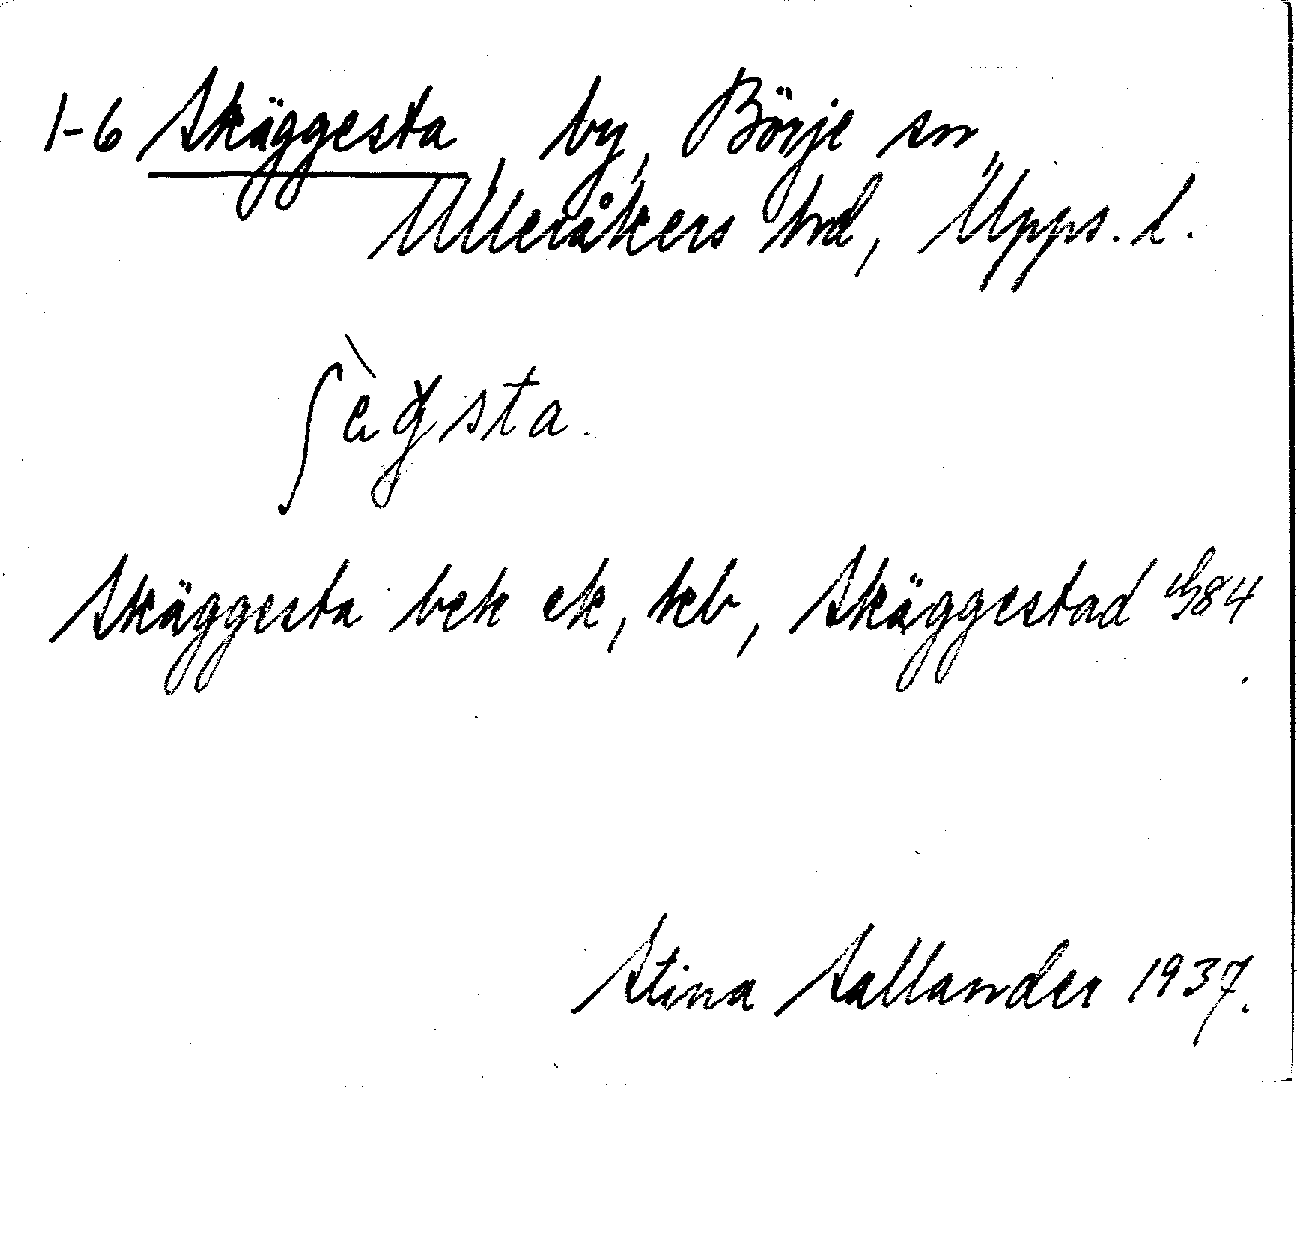 1-6 Skäggesta, by, Börje sn,
Ulleråkers hrd, Upps. l.
Skäggesta bek ek, kb, Skäggestad
Stina Sallander 1937.